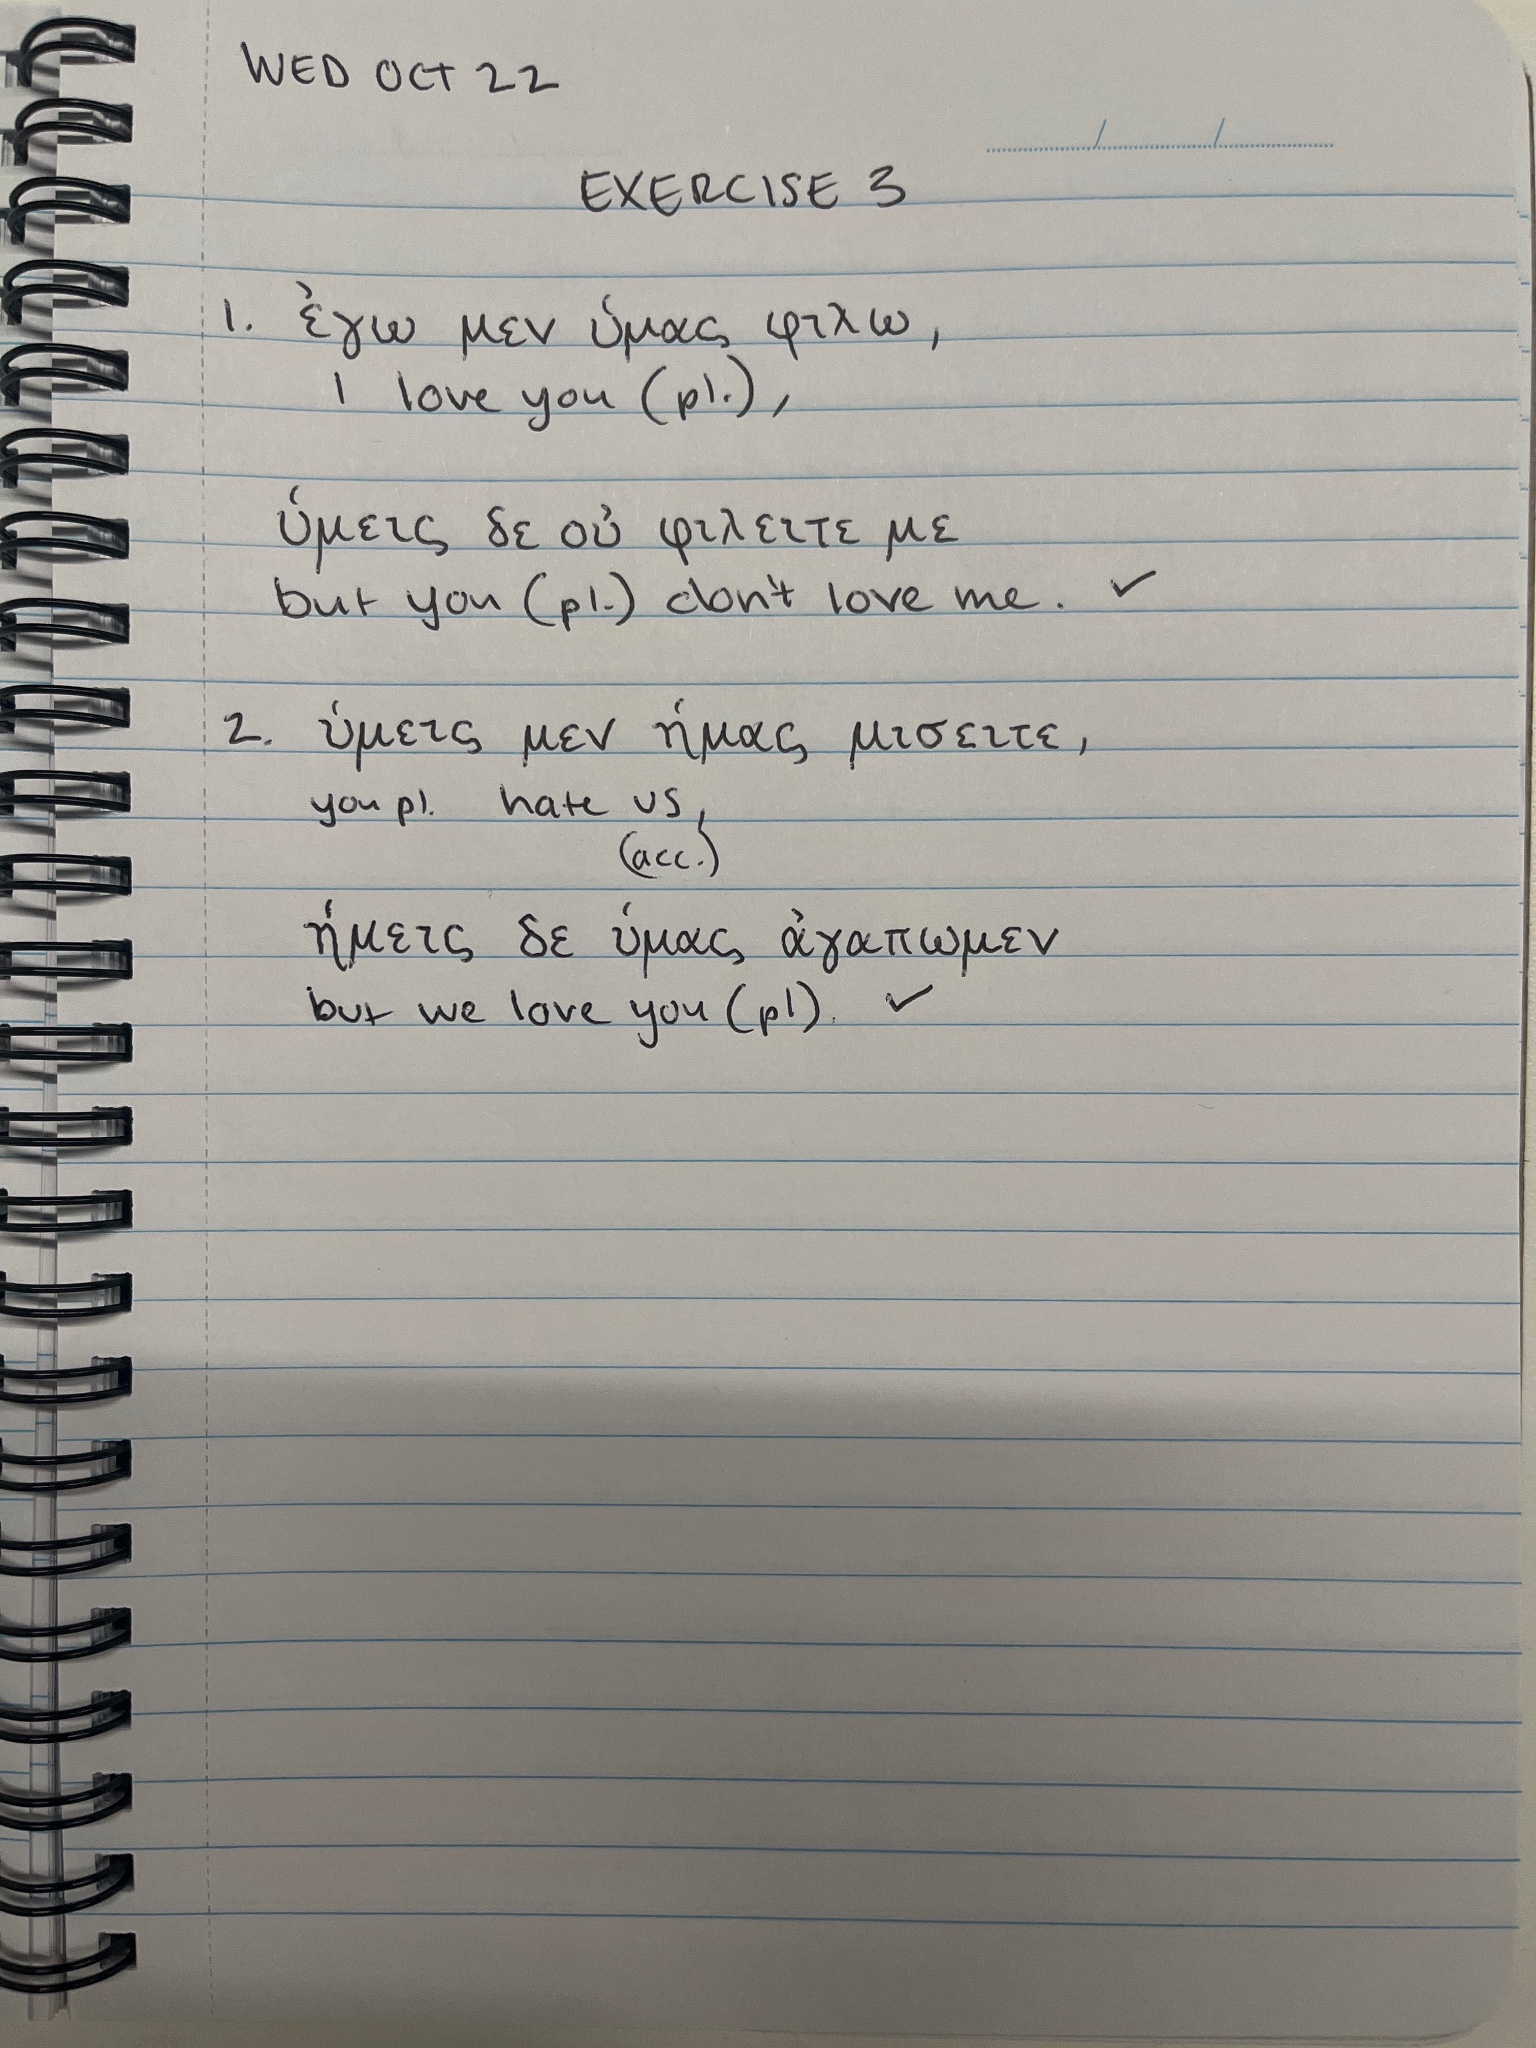 WED OCT 22
EXERCISE 3
1. ἐγω μεν ὑμας φιλω,
I love you (pl.),
ὑμεις δε οὐ φιλειτε με
but you (pl.) don't love me. ✓
2. ὑμεις μεν ἡμας μισειτε,
you pl. hate us,
(acc.)
ἡμεις δε ὑμας ἀγαπωμεν
but we love you (pl). ✓